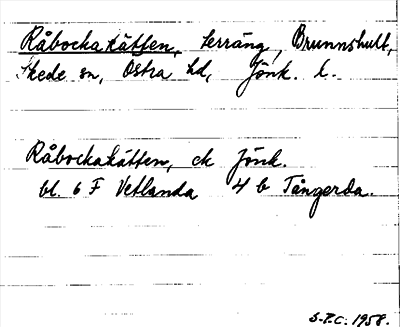 Råbockakätten, terräng, Brunnshult,
Skede sn, Östra hd, Jönk. l.
Råbockakätten, ek Jönk.
bl. 6 F Vetlanda 4 b Tångerda.
S.P.C. 1958.